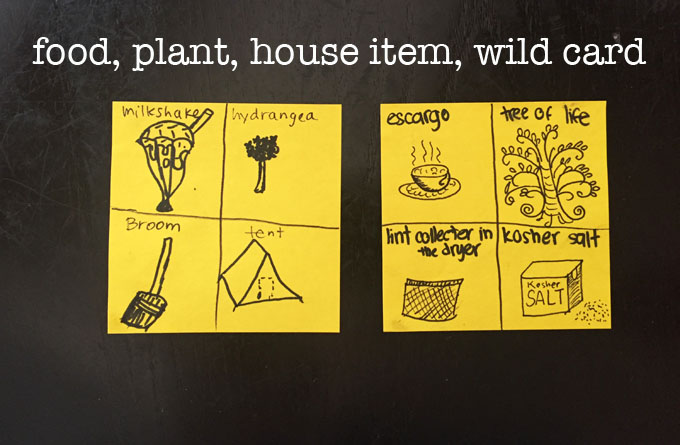 food, plant, house item, wild card
milkshake
hydrangea
Broom
tent
escargo
tree of life
lint collecter in
the dryer
kosher salt
Kosher
SALT